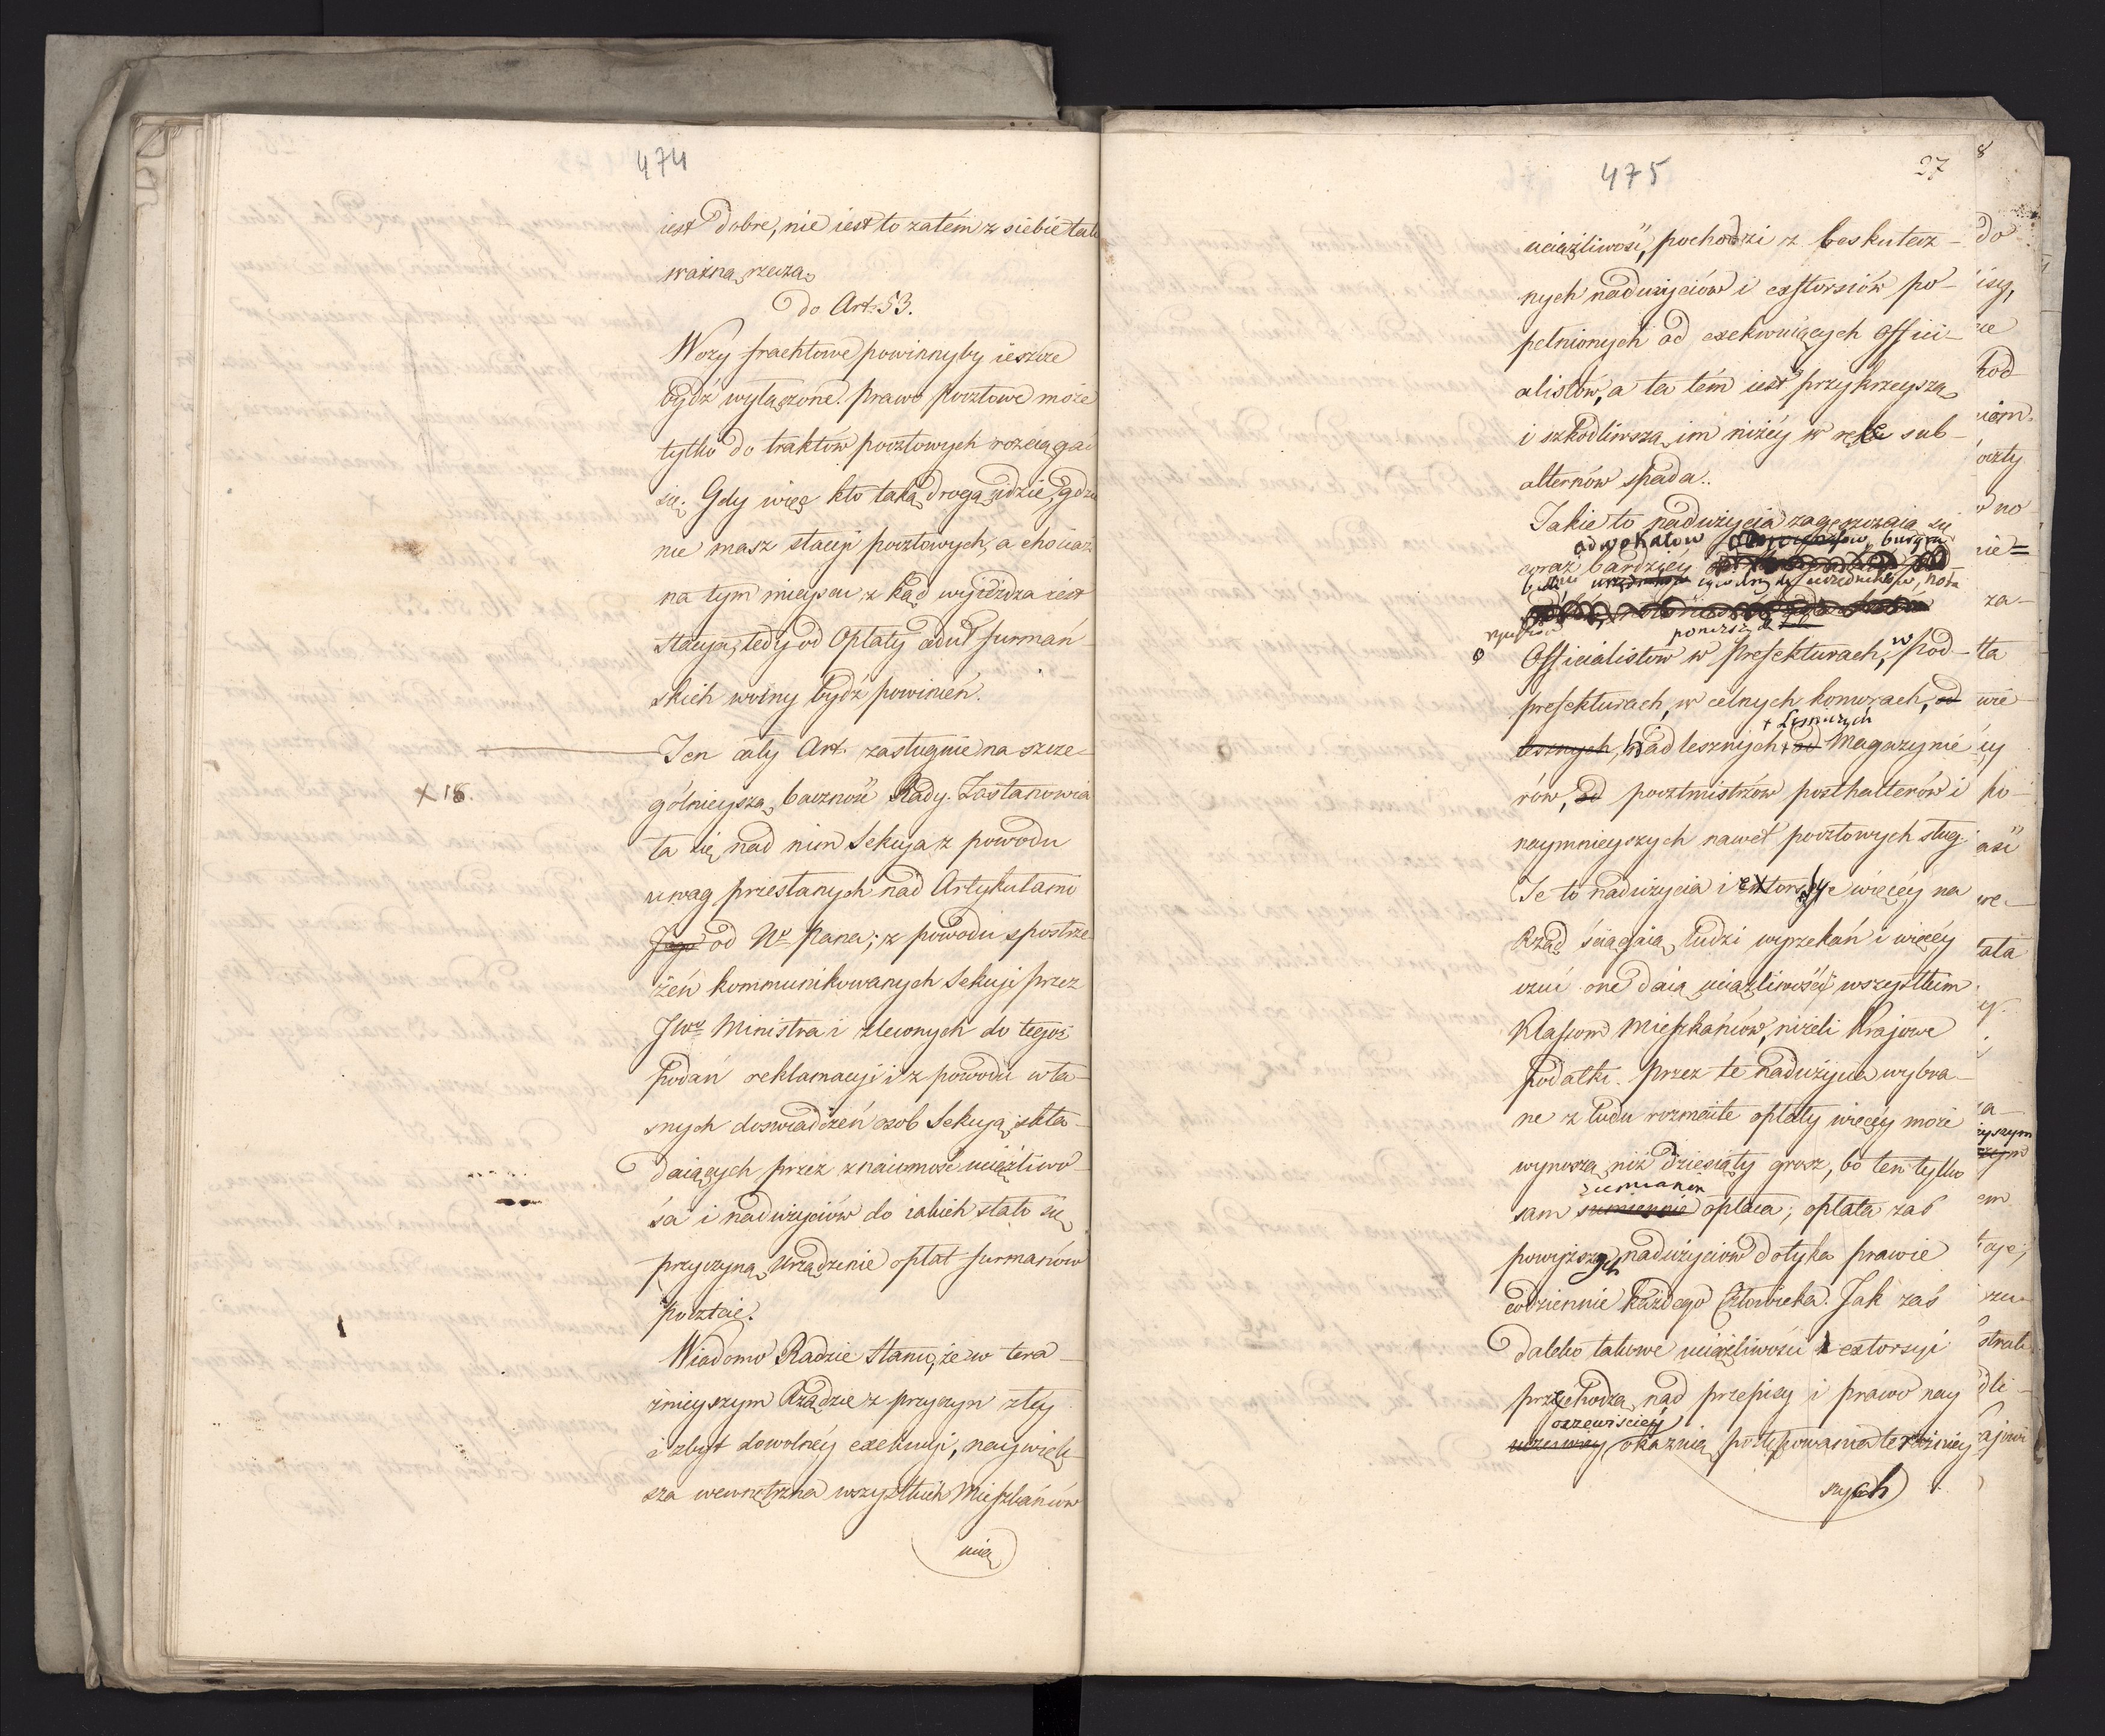 474
iest dobre, nie iest to zatém z siebie tak
ważną rzeczą
do Art. 53.
Wozy frachtowe powinnyby ieszcze
bydź wyłączone. prawo pocztowe może
tylko do traktów pocztowych rozciągać
się. Gdy więc kto taką drogą jdzie, gdzie
nie masz stacyi pocztowych, a chociaż
na tym mieyscu z kąd wyieżdza iest
stacya, tedy od Opłaty adut furmań
skich wolny bydź powinien.
Ten cały Art. zasługuie na szcze-
X 18.
gólnieyszą baczność Rady. Zastanowia
ła się nad nim Sekcya z powodu
uwag przesłanych nad Artykułami
Jego od Nº Pana; z powodu spostrze
żeń kommunikowanych Sekcyi przez
JWº Ministra i zleconych do tegoż
podań reklamacyi i z powodu wła-
snych doswiadczeń osob Sekcyą skła-
daiących przez znaiomość uciążliwo-
ści i nadużyciów do iakich stało się
przyczyną urządzenie opłat furmanów
poczcie.
Wiadomo Radzie Stanu, że w tera-
źnieyszym Rządzie z przyczyn złey
i zbyt dowolnéy exekucyi, naywięk-
sza wewnętrzna wszystkich Mieszkańców
ucią
475
27
8
uciążliwość, pochodzi z beskutecz-
nych nadużyciów i exstorsiów po-
pełnionych od exekwuiących Offici-
alistów, a ta tém iest przykrzeyszą
i szkodliwszą im niżéy w ręke sub-
alternów spada.
Takie to nadużycia zagęszczaią się
adwokatów burgra
coraz bardziéy
urzędników
ponizszych
Officialistów w Prefekturach, w Pod-
prefekturach, w celnych komorach, od
+ Leśniczych
lesznych, Nadlesznych, od Magazynie
rów, od pocztmistrzów posthalterów i
naymnieyszych nawet pocztowych sług
Te to nadużycia i extorsye więcéy na
Rząd ściągaią ludzi wyrzekań i więcéy
czuć one daią uciążliwości wszystkim
Klassom Mieszkańców, niżeli Krajowe
podatki. Przez te nadużycia wybra-
ne z ludu rozmaite opłaty więcéy może
wynoszą niż dziesiąty grosz, bo ten tylko
ziemianin
sam sumiennie opłaca; opłata zaś
powyższych nadużyciów dotyka prawie
codziennie każdego Człowieka. Jak zaś
daleko takowe uciążliwości i extorsyi
przechodzą nad przepisy i prawo nay
oczewiściéy
uczciwiey okaznią postępowania teraźniey
szych
do
isy,
nie
hod
niom.
oczty
w no
nie=
za-
ta
wie
cy
po-
aść
we-
ała
yszym
em
strat
dli-
ajowi